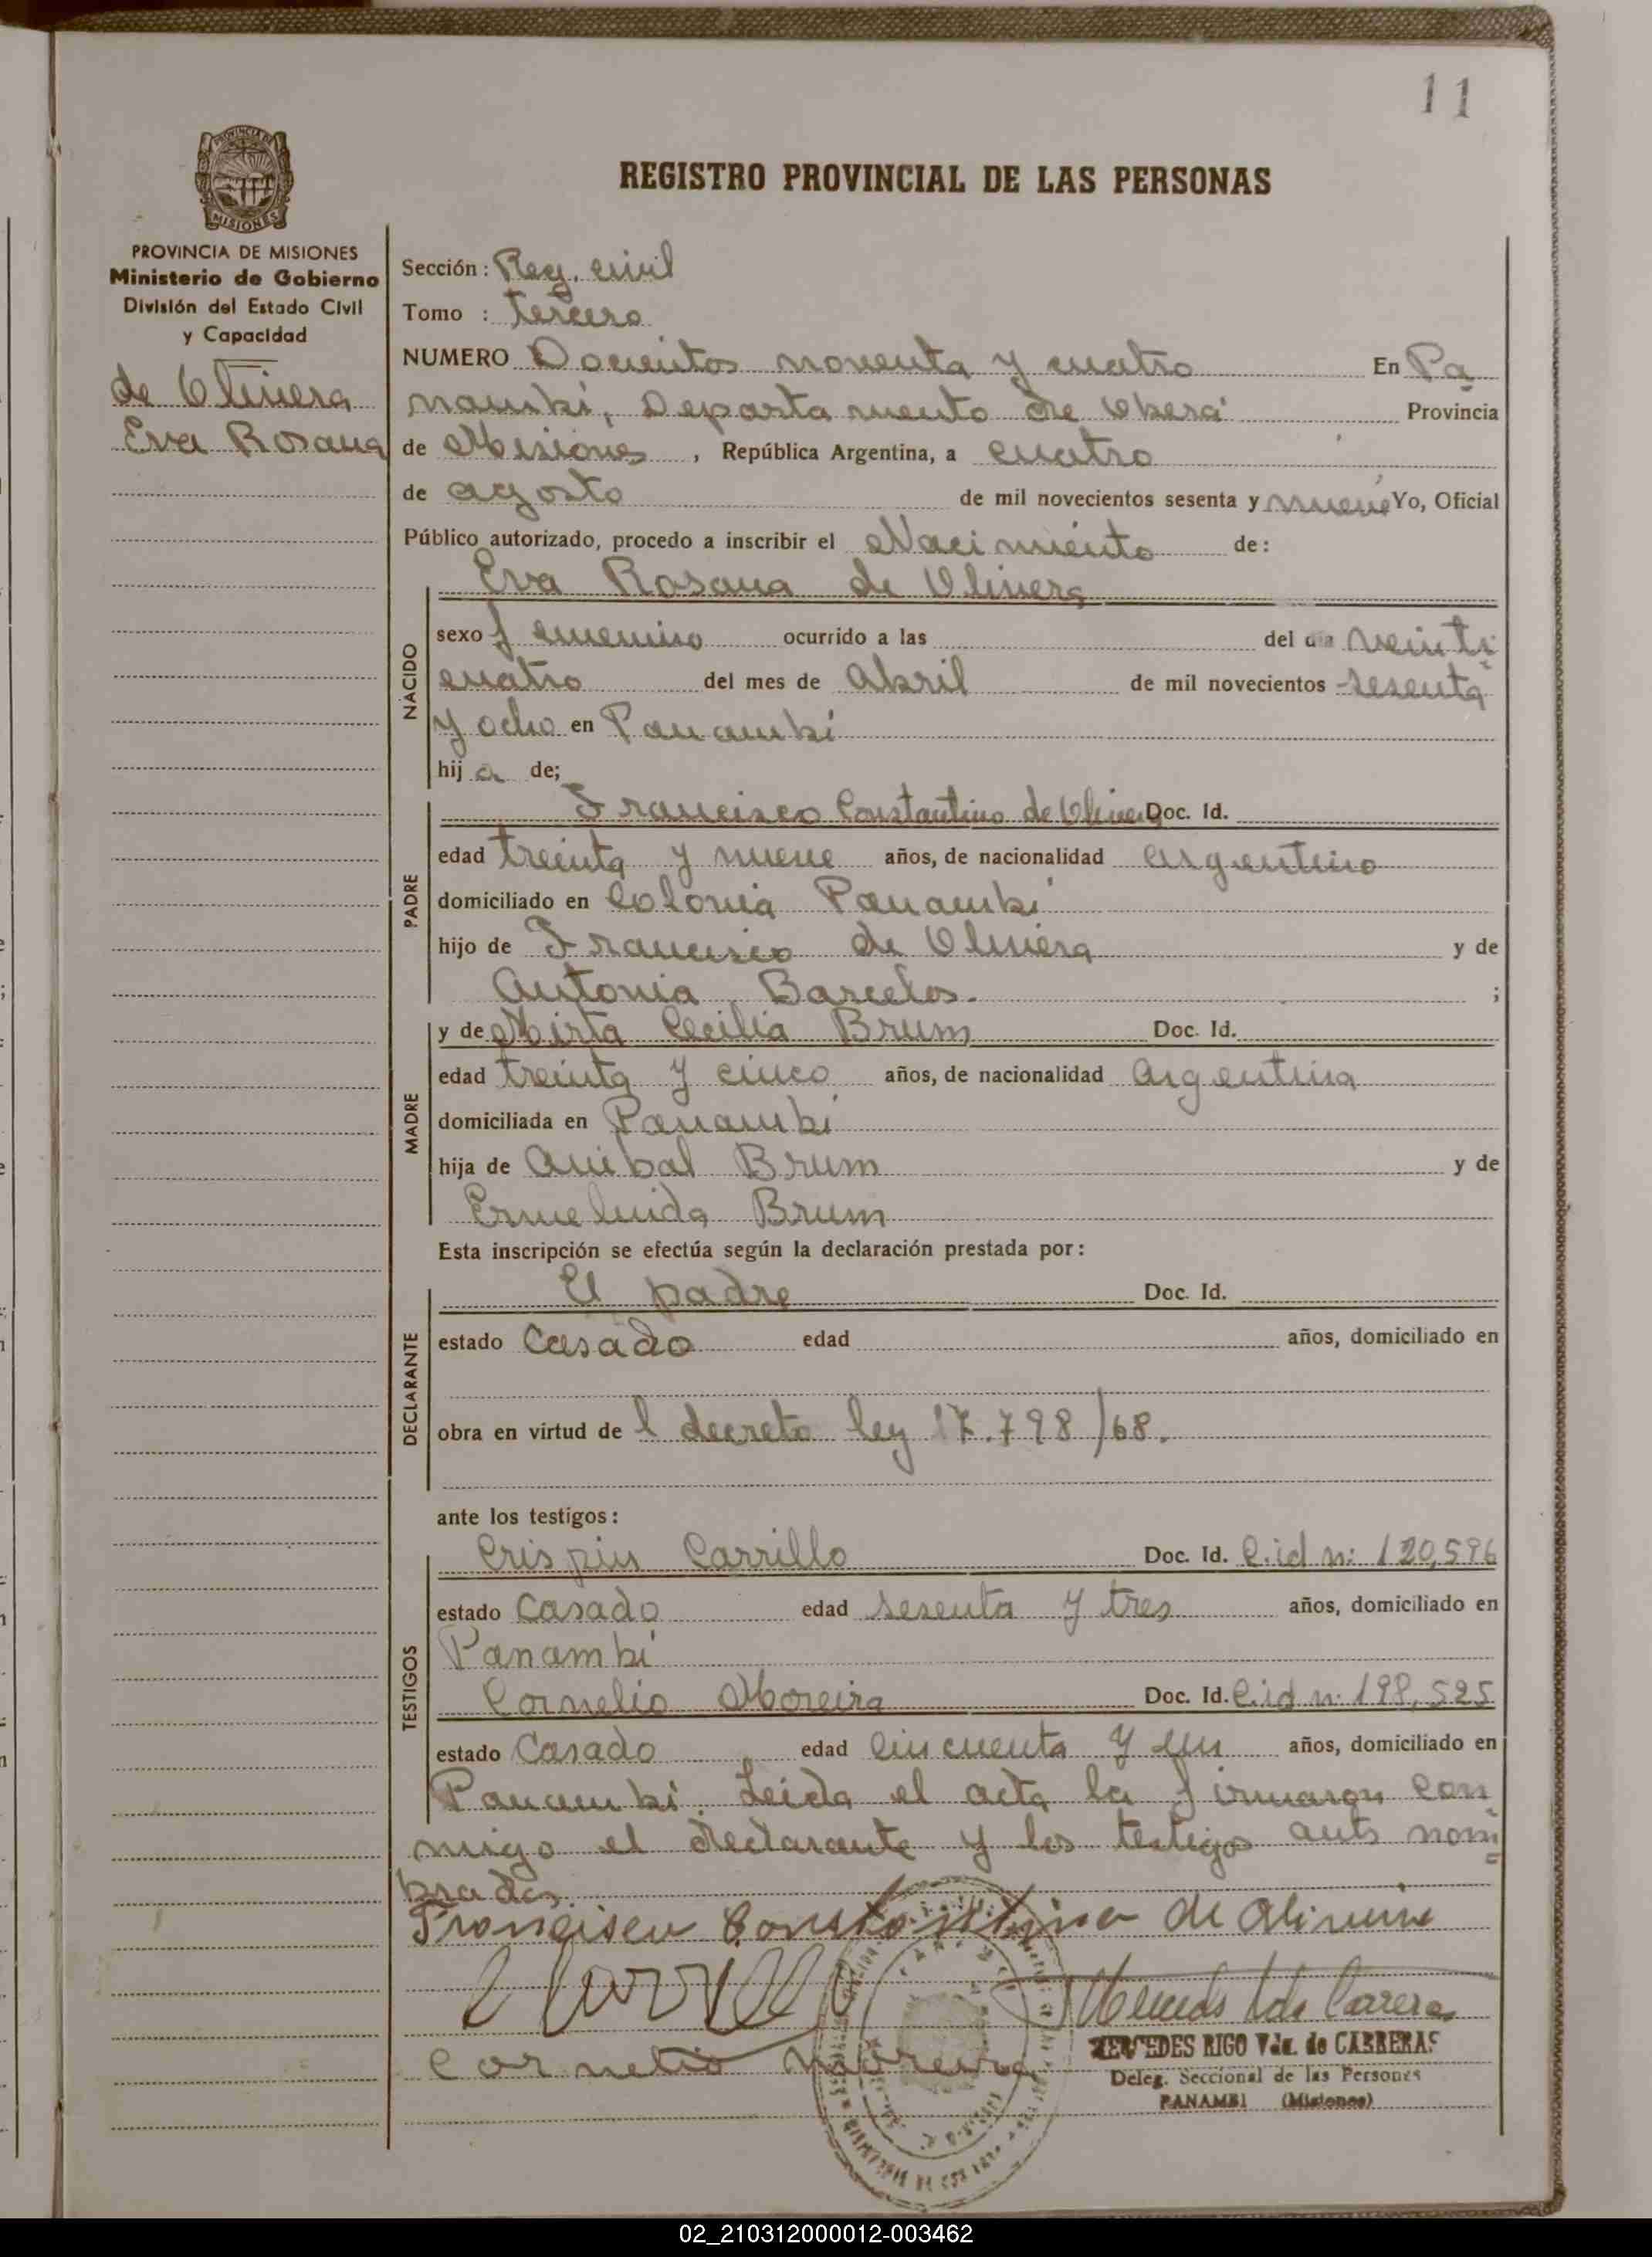 11
PROVINCIA DE MISIONES
REGISTRO PROVINCIAL DE LAS PERSONAS
PROVINCIA DE MISIONES
Ministerio de Gobierno
División del Estado Civil
y Capacidad
de Olivera
Eva Rosana
Sección: Reg. civil
Tomo : tercero
NUMERO Docientos noventa y cuatro En Pa
nambí, Departamento de Oberá Provincia
de Misiones, República Argentina, a cuatro
de agosto de mil novecientos sesenta y nueve Yo, Oficial
Público autorizado, procedo a inscribir el Nacimiento de:
Eva Rosana de Olivera
NACIDO
sexo femenino ocurrido a las del día veinti
cuatro del mes de Abril de mil novecientos sesenta
y ocho en Panambí
hij a de;
PADRE
Francisco Constantino de Olivera Doc. Id.
edad treinta y nueve años, de nacionalidad argentino
domiciliado en Colonia Panambí
hijo de Francisco de Olivera y de
Antonia Barcelos. ;
MADRE
y de Mirta Cecilia Brum Doc. Id.
edad treinta y cinco años, de nacionalidad argentina
domiciliada en Panambí
hija de Anibal Brum y de
Brum
Esta inscripción se efectúa según la declaración prestada por:
DECLARANTE
El padre Doc. Id.
estado Casado edad años, domiciliado en
obra en virtud de l decreto ley 17.798/68.
ante los testigos:
TESTIGOS
Crispin Carrillo Doc. Id. C.id n: 120,596
estado Casado edad sesenta y tres años, domiciliado en
Panambí
Cornelio Moreira Doc. Id. C.id n: 198,525
estado Casado edad cincuenta y un años, domiciliado en
Panambí. Leida el acta la firmaron con
migo el declarante y los testigos ants nom
brados.
Francisco Constantino de Olivera
Carrillo
Mercedes Vda Carreras
cornelio moreira
MERCEDES RIGO Vda. de CARRERAS
Deleg. Seccional de las Personas
PANAMBI (Misiones)
02_210312000012-003462